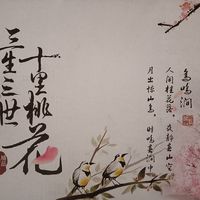 三生三世
十里桃花
鸟鸣涧
人闲桂花落，夜静春山空
月出惊山鸟，时鸣春涧中